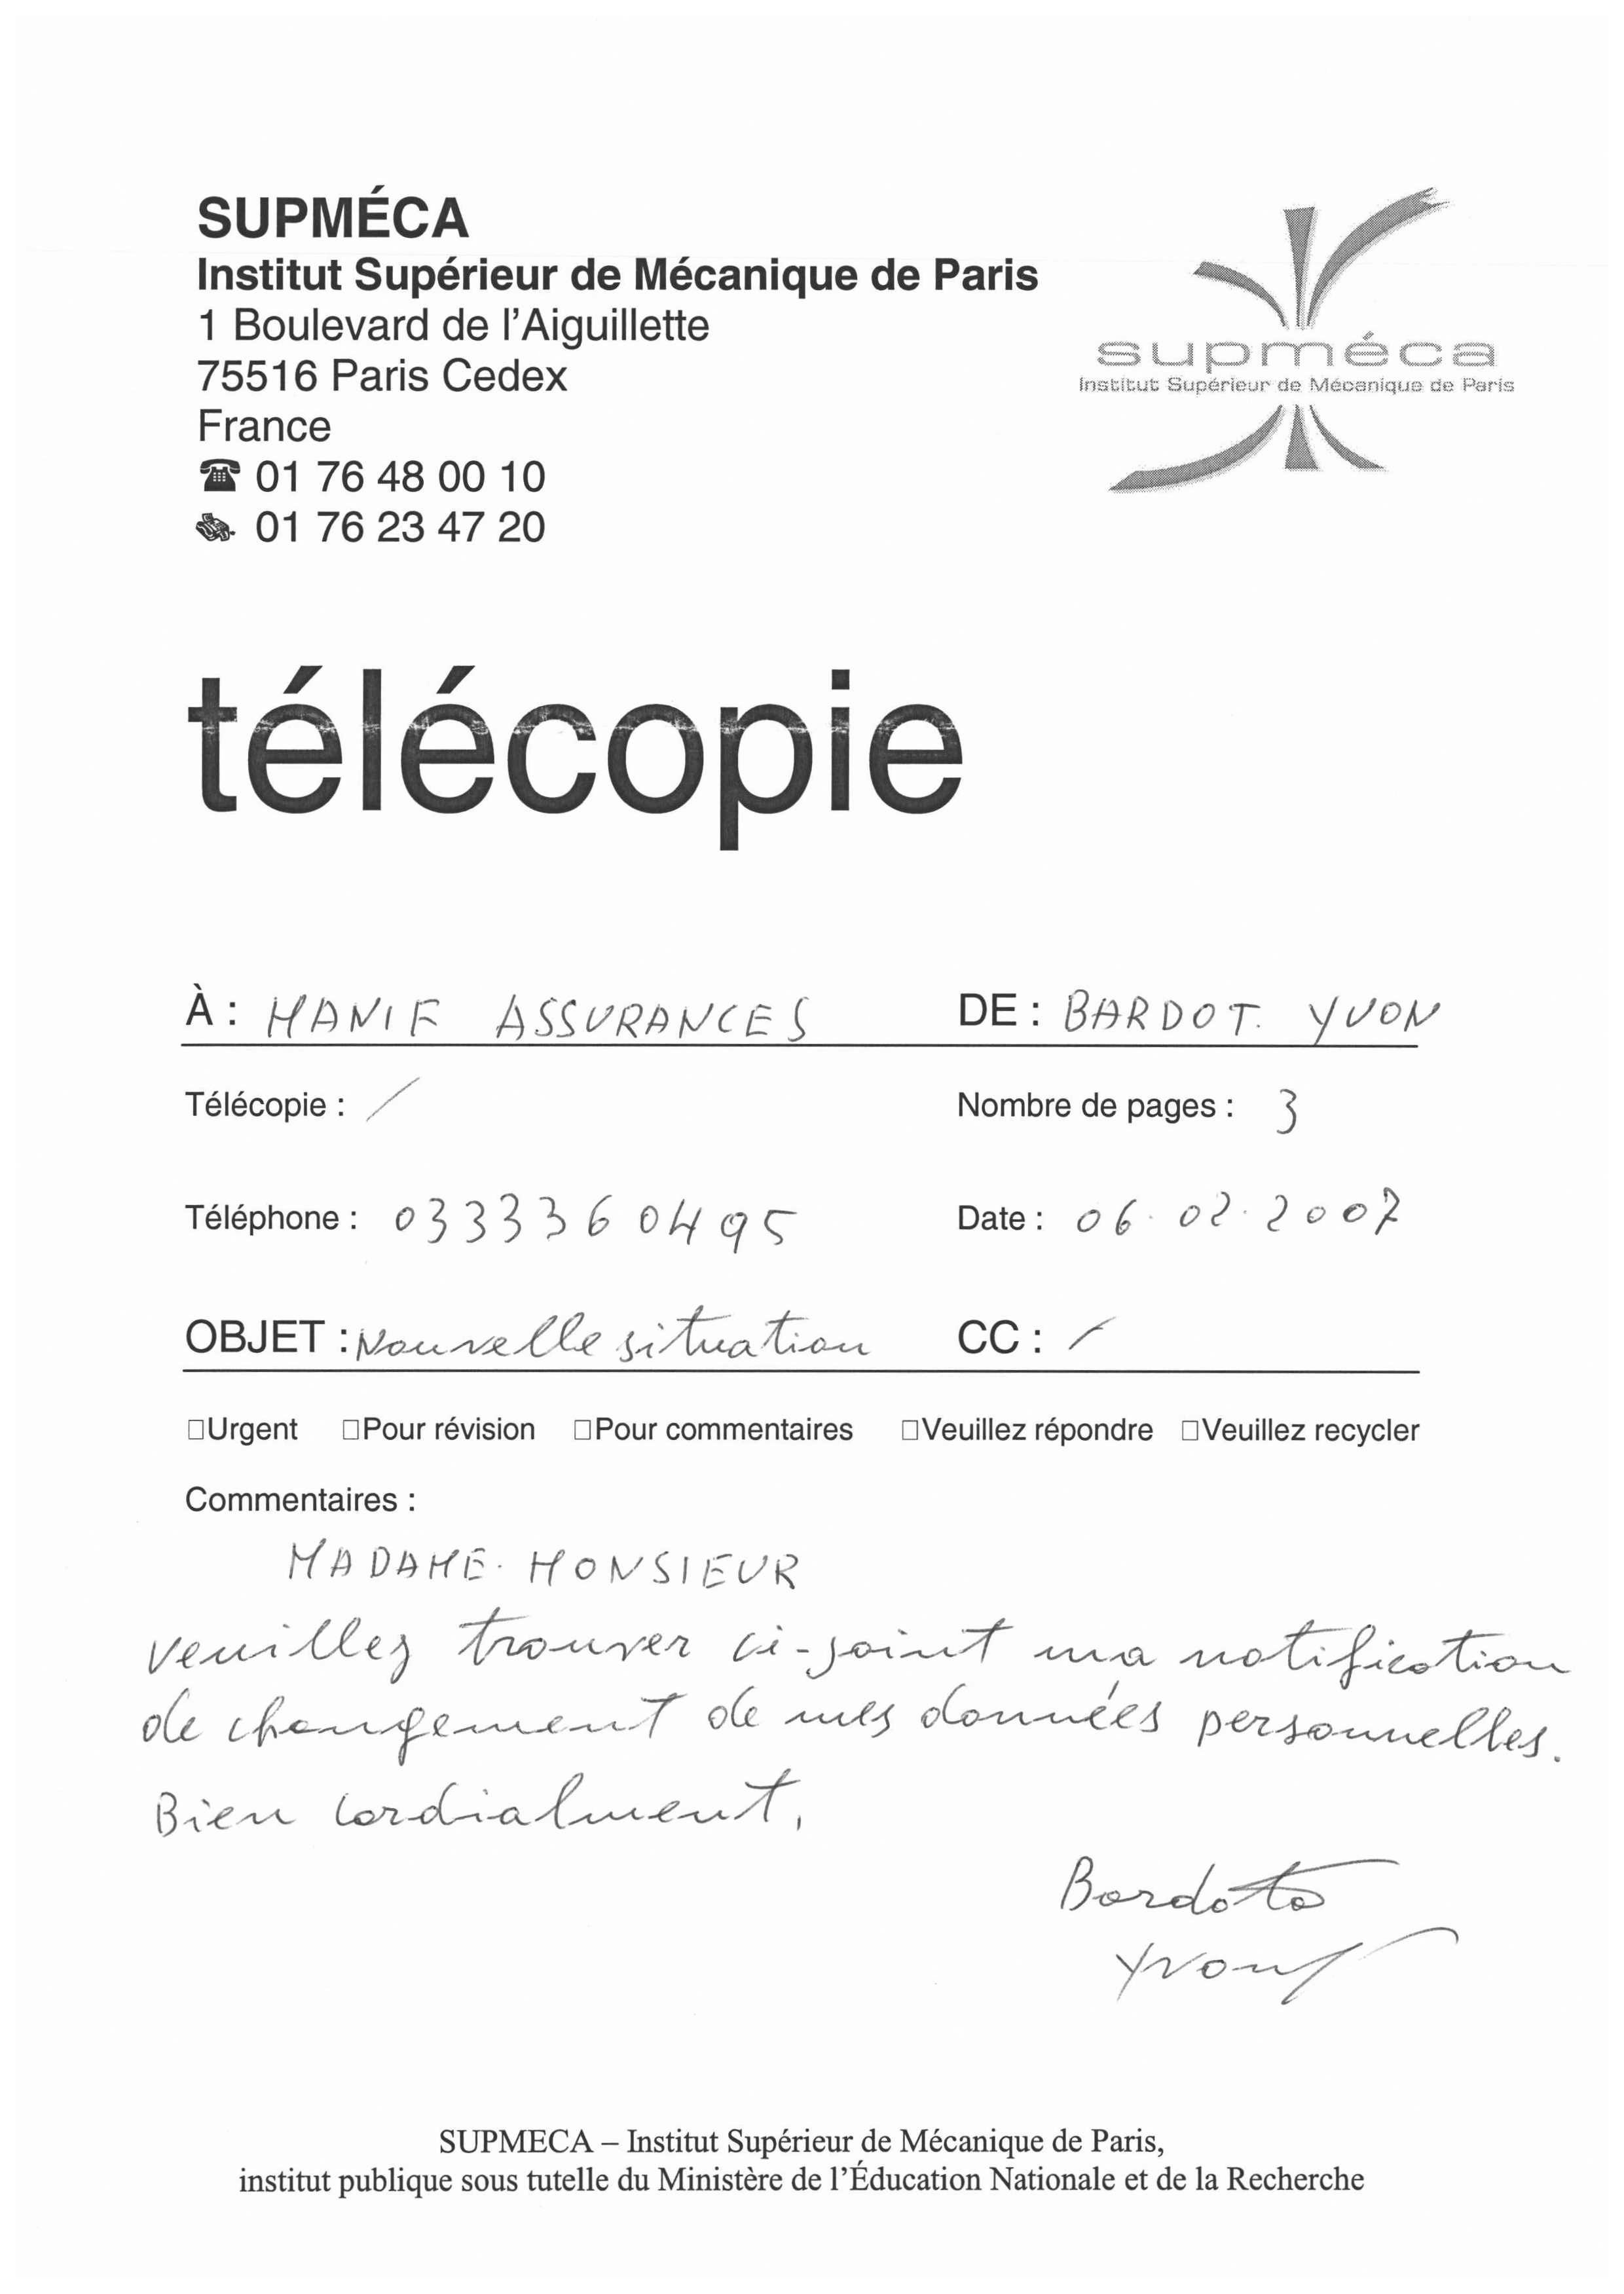 SUPMÉCA
Institut Supérieur de Mécanique de Paris
1 Boulevard de l'Aiguillette
75516 Paris Cedex
France
☎ 01 76 48 00 10
01 76 23 47 20
supméca
Institut Supérieur de Mécanique de Paris
télécopie
À : HANIF ASSURANCES DE : BARDOT YVON
Télécopie : / Nombre de pages : 3
Téléphone : 0333360495 Date : 06.02.2007
OBJET : Nouvelle situation CC : /
□Urgent □Pour révision □Pour commentaires □Veuillez répondre □Veuillez recycler
Commentaires :
MADAME. MONSIEUR
Veuillez trouver ci-joint ma notification
de changement de mes données personnelles.
Bien cordialment,
Bardot
Yvon
SUPMECA – Institut Supérieur de Mécanique de Paris,
institut publique sous tutelle du Ministère de l'Éducation Nationale et de la Recherche